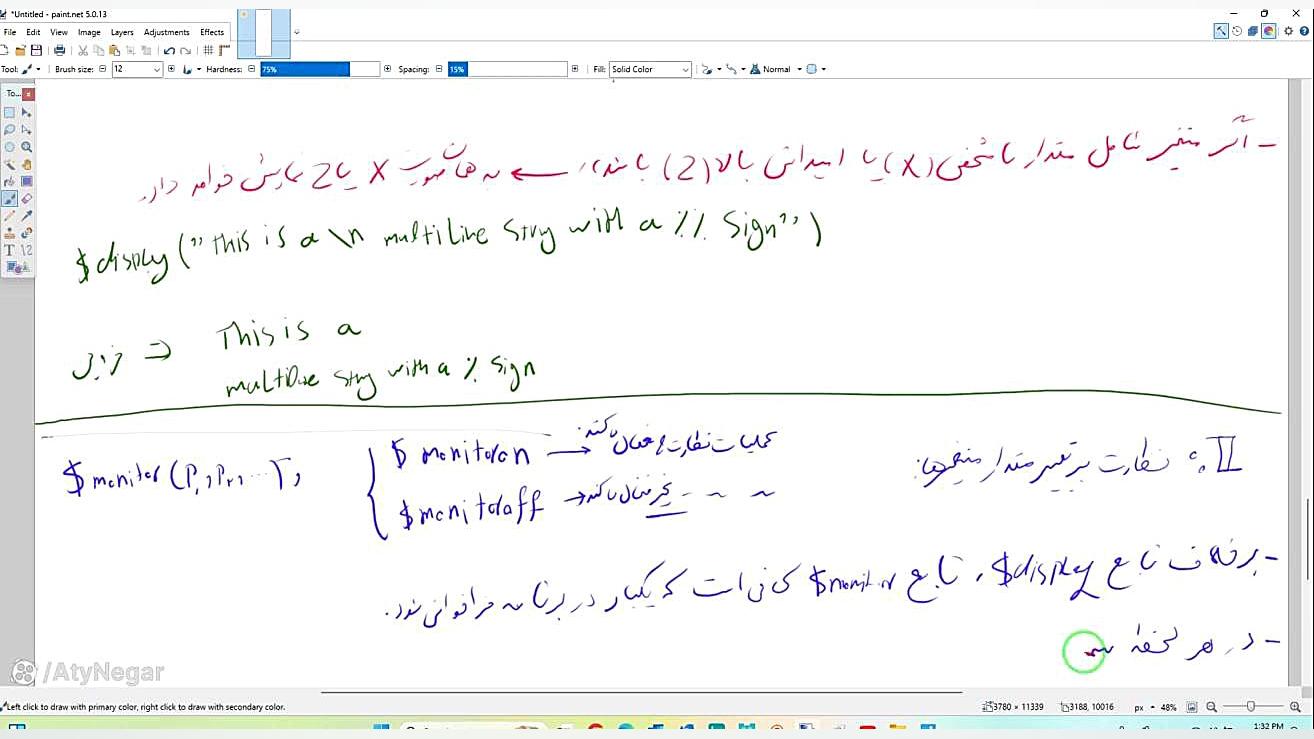 *Untitled - paint.net 5.0.13
File Edit View Image Layers Adjustments Effects
Tool: Brush size: 12 Hardness: 75% Spacing: 15% Fill: Solid Color Normal
To...
- اگر متغیر شامل مقدار نامشخص (X) یا امپدانس بالا (Z) باشد، ← به همان صورت X یا Z نمایش خواهد داد.
$display("This is a \n multiline string with a %% Sign")
خروجی ⇒ This is a
multiline string with a % sign
II: نظارت بر تغییر مقدار متغیرها:
$monitor(P1, P2, ...);
$monitoron → عملیات نظارت را فعال می‌کند.
$monitoroff → غیرفعال می‌کند ~ ~
- برخلاف تابع $display، تابع $monitor کافی است که یکبار در برنامه فراخوانی شود.
- در هر لحظه
/AtyNegar
Left click to draw with primary color, right click to draw with secondary color.
3780 × 11339 3188, 10016 px 48%
1:32 PM